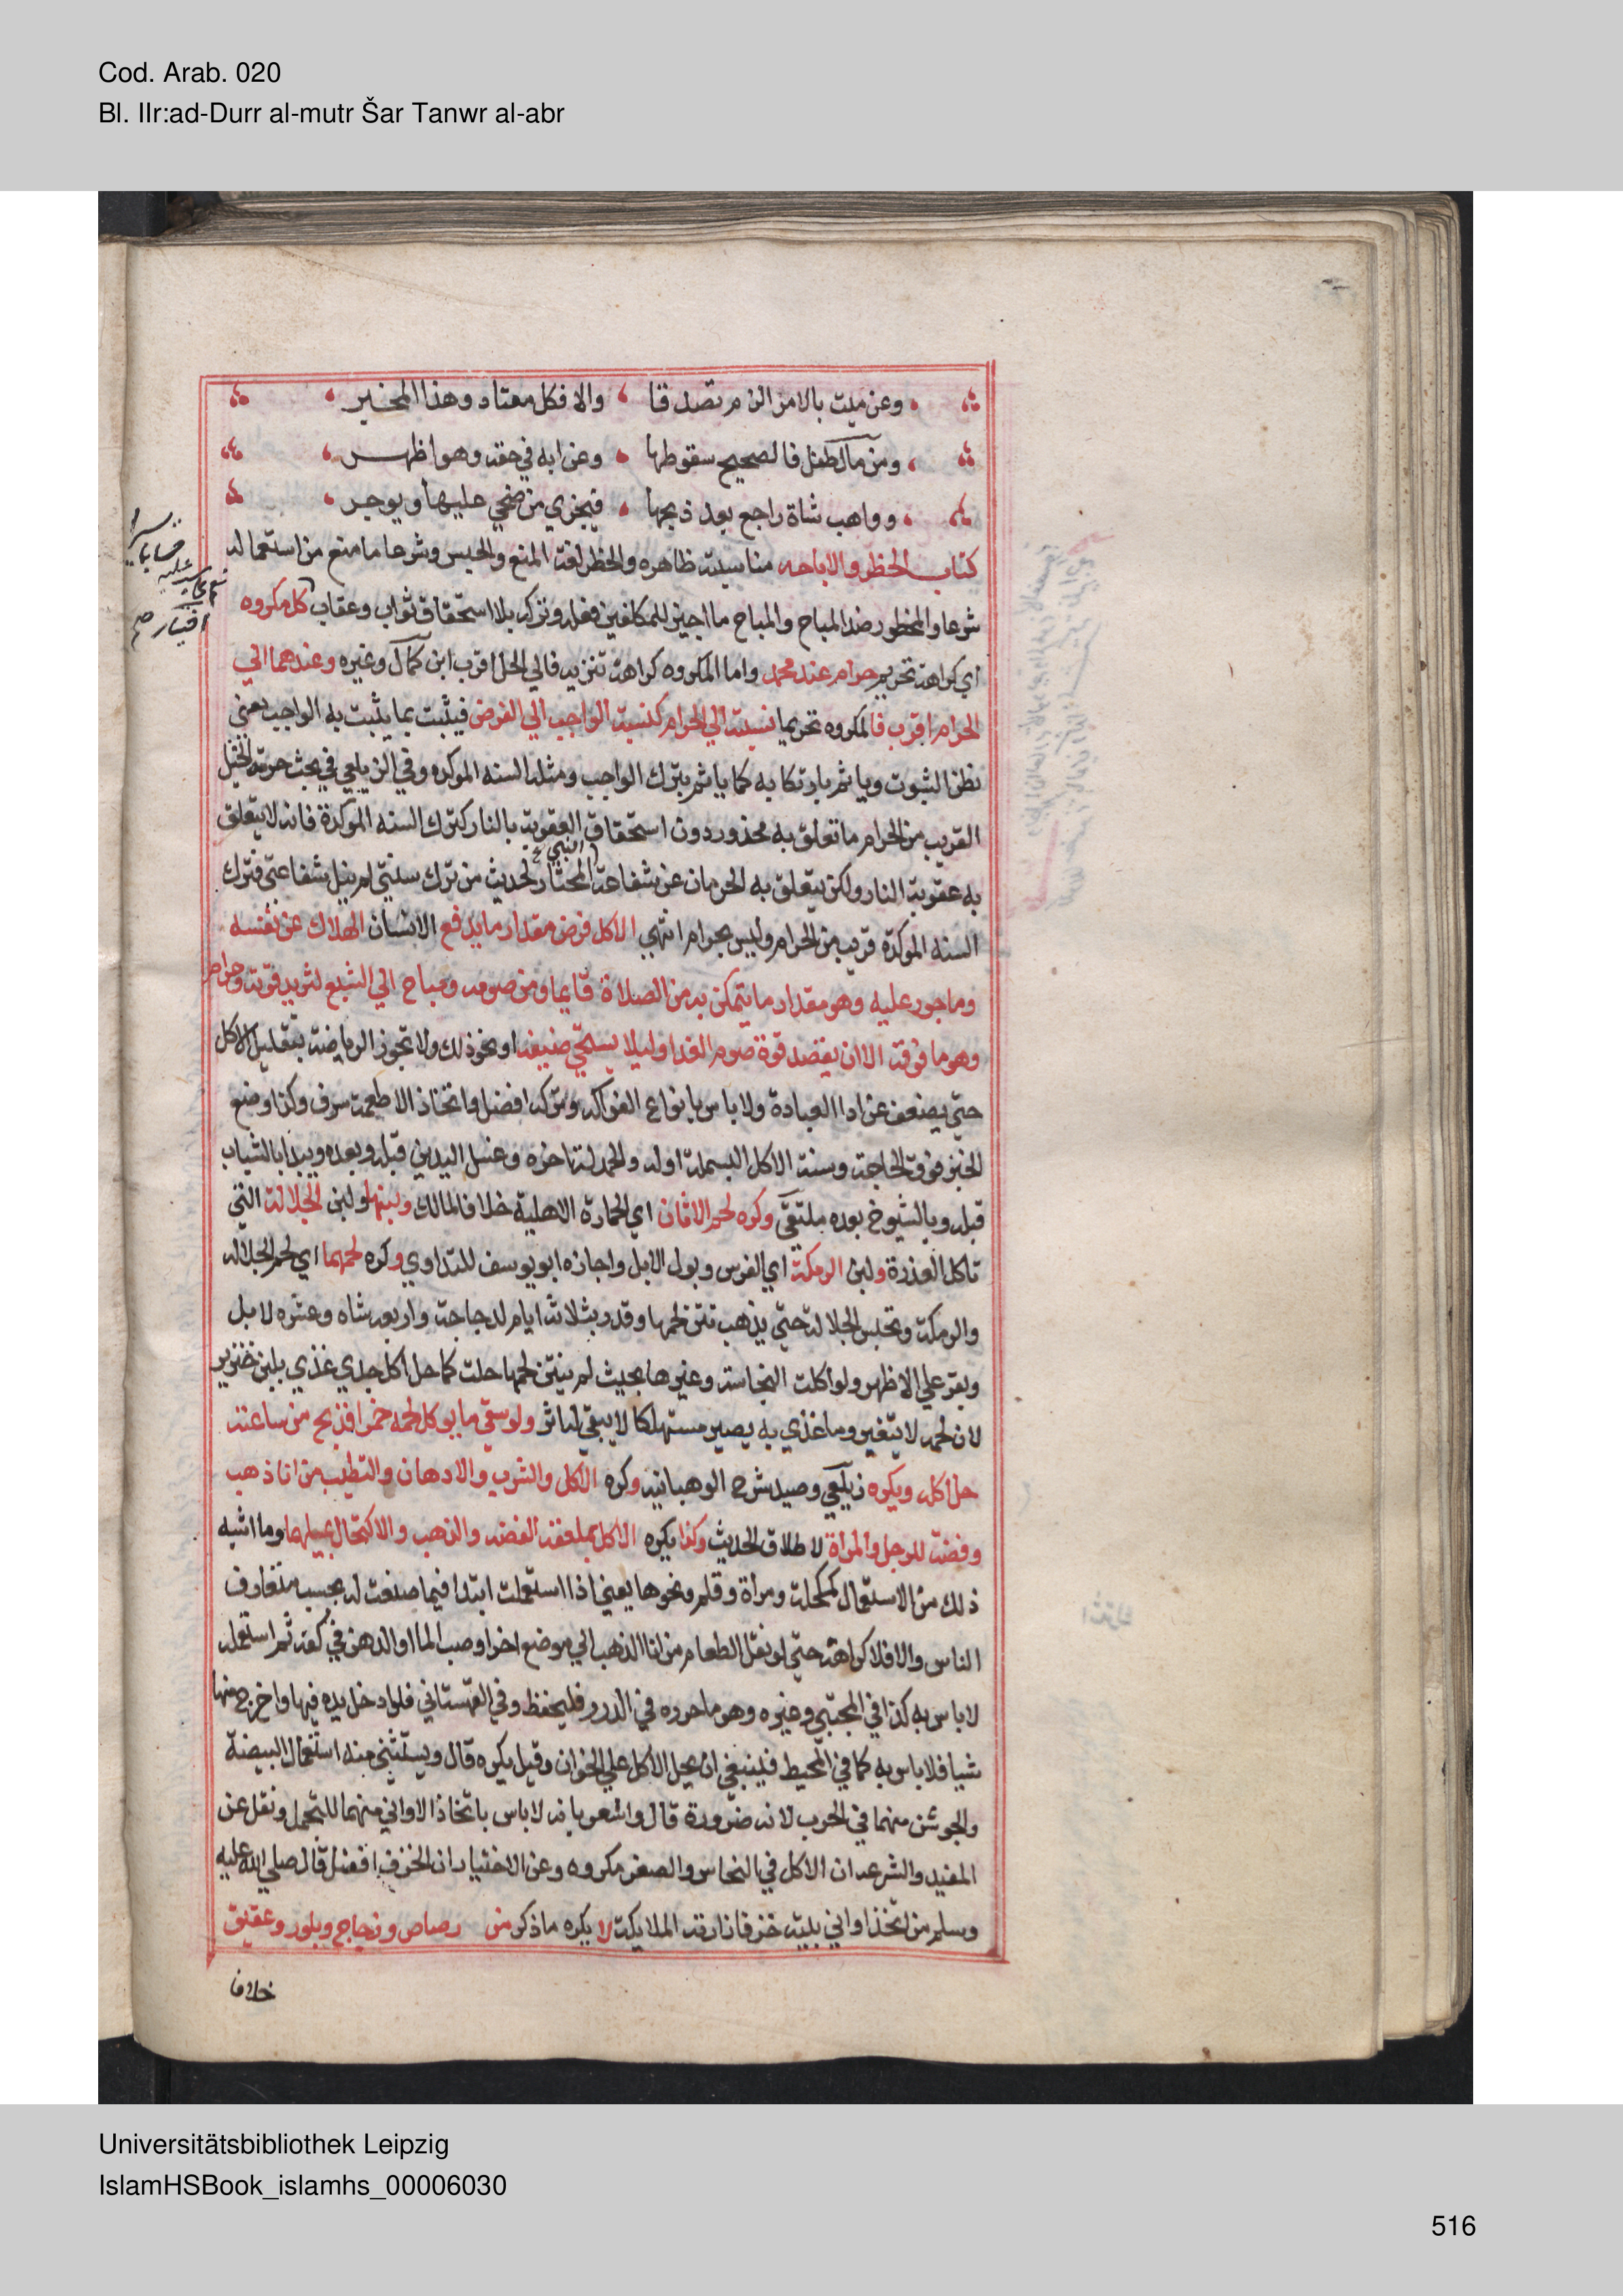 Cod. Arab. 020
Bl. IIr:ad-Durr al-mutr Šar Tanwr al-abr
وعن ميت بالامر الزم تصدقا ، والا فكل معتاد وهذا المخير
ومن مال طفل فالصحيح سقوطها ، وعن ابه في حقه وهو اظهر
وواهب شاة راجع بعد ذبحها ، فيجزي من ضحي عليها ويوجر
كتاب الحظر والاباحه مناسبته ظاهره والحظر لغة المنع والحبس وشرعا ما منع من استعماله
شرعا والمحظور ضد المباح والمباح ما اجيز للمكلفين فعله وتركه بلا استحقاق ثواب وعقاب كل مكروه
اي كراهة تحريم حرام عند محمد واما المكروه كراهة تنزيه فالي الحل اقرب ابن كمال وغيره وعندهما الي
الحرام اقرب فالمكروه تحريما نسبته الي الحرام كنسبة الواجب الي الفرض فيثبت بما يثبت به الواجب يعني
بظن الثبوت وياثم بارتكابه كما ياثم بترك الواجب ومثله السنه الموكده وفي الزيلعي في بحث حرمة الخيل
القريب من الحرام ما تعلق به محذور دون استحقاق العقوبة بالنار كترك السنه الموكدة فانه لا يتعلق
به عقوبة النار ولكن يتعلق به الحرمان عن شفاعة النبي المختار لحديث من ترك سنتي لم ينل شفاعتي فترك
السنه الموكدة قريب من الحرام وليس بحرام انتهي الاكل فرض مقدار ما يدفع الانسان الهلاك عن نفسه
وماجور عليه وهو مقدار ما يتمكن به من الصلاة قايما ومن صومه ومباح الي الشبع لتزيد قوته وحرام
وهو ما فوقه الا ان يقصد قوة صوم الغد او ليلا يستحي ضيفه او نحو ذلك ولا تجوز الرياضة بتقليل الاكل
حتي يضعف عن ادا العبادة ولا باس بانواع الفواكه وتركه افضل واتخاذ الاطعمة سرف وكذا وضع
الخبز فوق الحاجة وسنة الاكل البسملة اوله والحمدلة اخره وغسل اليدين قبله وبعده ويبدا بالشباب
قبله وبالشيوخ بعده ملتقي وكره لحم الاتان اي الحمارة الاهلية خلافا لمالك ولبنها ولبن الجلالة التي
تاكل العذرة ولبن الرمكة اي الفرس وبول الابل واجازه ابو يوسف للتداوي وكره لحمهما اي لحم الجلاله
والرمكة وتحبس الجلالة حتي يذهب نتن لحمها وقدر بثلاثة ايام لدجاجة واربعه لشاه وعشره لابل
وبقر علي الاظهر ولو اكلت النجاسة وغيرها بحيث لم ينتن لحمها حلت كما حل اكل جدي غذي بلبن خنزير
لان لحمه لا يتغير وما غذي به يصير مستهلكا لا يبقي له اثر ولو سقي ما يوكل لحمه خمرا فذبح من ساعته
حل اكله ويكره زيلعي وصيد شرح الوهبانيه وكره الاكل والشرب والادهان والتطيب من انا ذهب
وفضة للرجل والمراة لاطلاق الحديث وكذا يكره الاكل بملعقة الفضه والذهب والاكتحال بميلهما وما اشبه
ذلك من الاستعمال كمكحلة ومراة وقلم ونحوها يعني اذا استعملت ابتدا فيما صنعت له بحسب متعارف
الناس والا فلا كراهة حتي لو نقل الطعام من انا الذهب الي موضع اخر او صب الما او الدهن في كفه ثم استعمله
لا باس به كذا في المجتبي وغيره وهو ما حرره في الدرر فليحفظ وفي القهستاني فلو ادخل يده فيها واخرج منها
شيا فلا باس به كما في المحيط فينبغي ان يحل الاكل علي الخوان وقيل يكره قال ويستثني منه استعمال البيضة
والجوشن منهما في الحرب لانه ضرورة قال واشعر بانه لا باس باتخاذ الاواني منهما للتجمل ونقل عن
المفيد والشرعه ان الاكل في النحاس والصفر مكروه وعن الاختيار ان الخزف افضل قال صلي الله عليه
وسلم من اتخذ اواني بيته خزفا زارته الملايكة لا يكره ما ذكر من رصاص وزجاج وبلور وعقيق
خلافا
Universitätsbibliothek Leipzig
IslamHSBook_islamhs_00006030
516